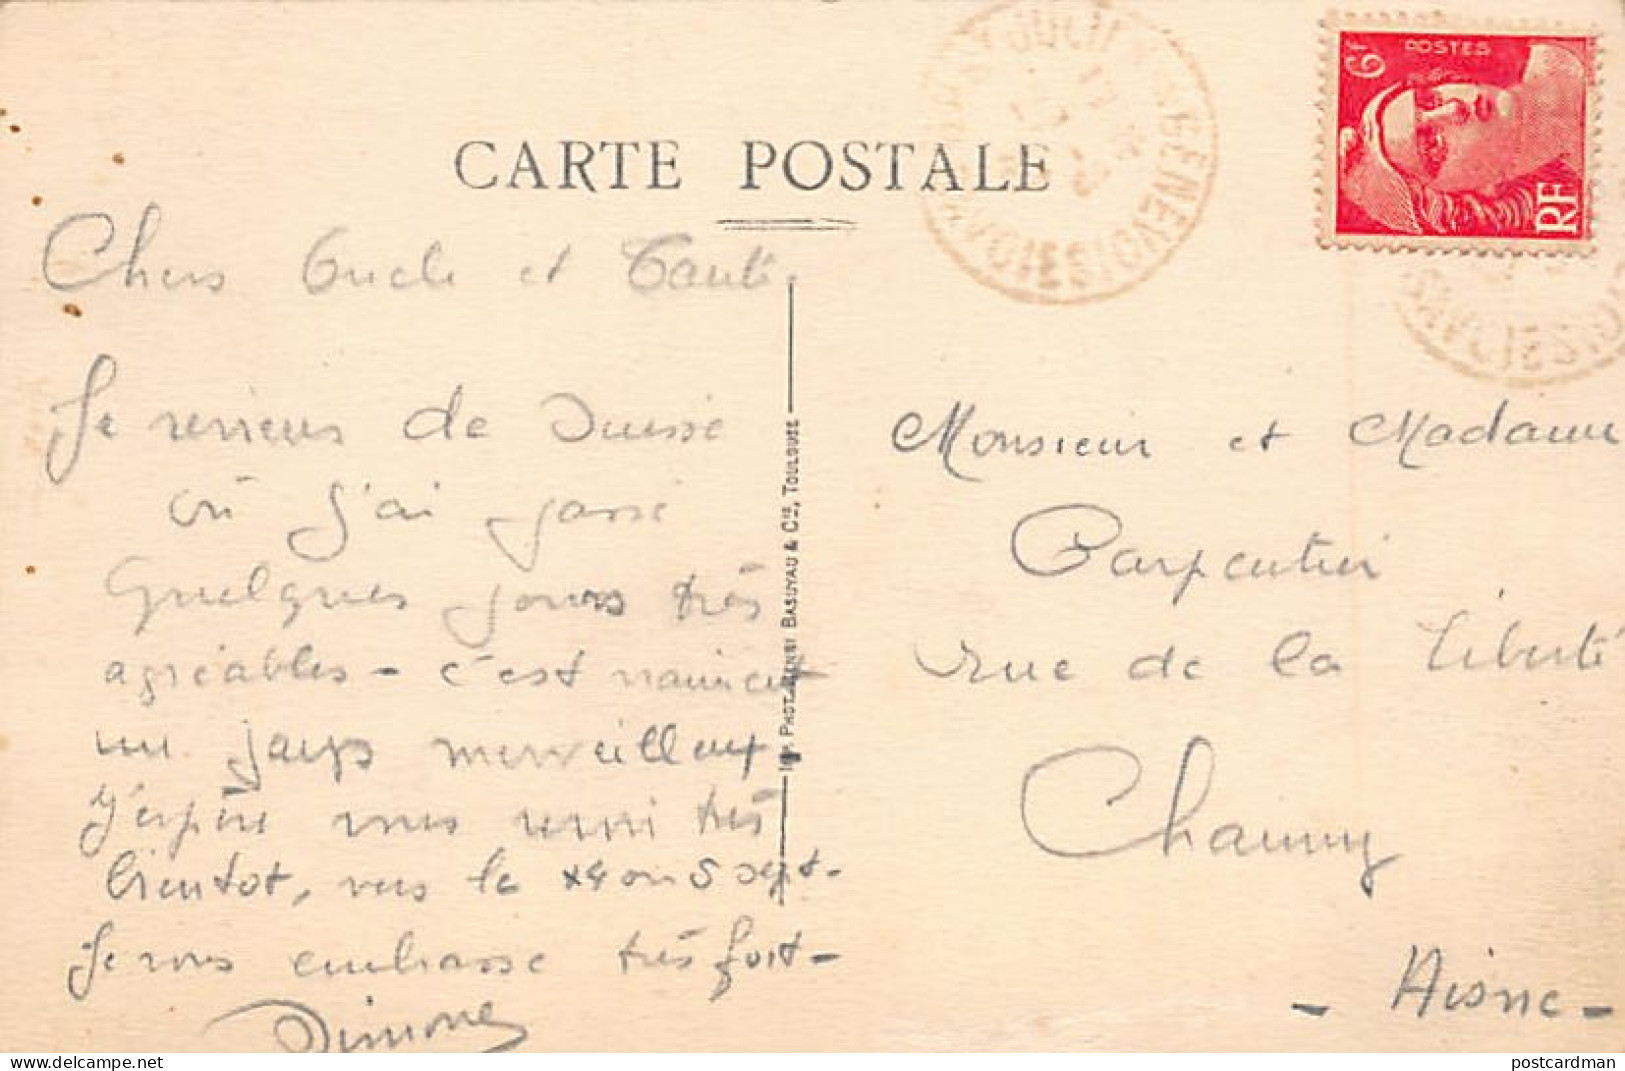 CARTE POSTALE
Chers Oncle et Tante.
Je reviens de Suisse
où j'ai passé
quelques jours très
agréables - c'est vraiment
un pays merveilleux
J'espère vous revoir très
bientôt, vers le 4 ou 5 sept.
Je vous embrasse très fort -
Simone
IMP. PHOT. HENRI BASUYAU & Cie, TOULOUSE
POSTES
6F
RF
Monsieur et Madame
Carpentier
rue de la Liberté
Chauny
- Aisne -
postcardman